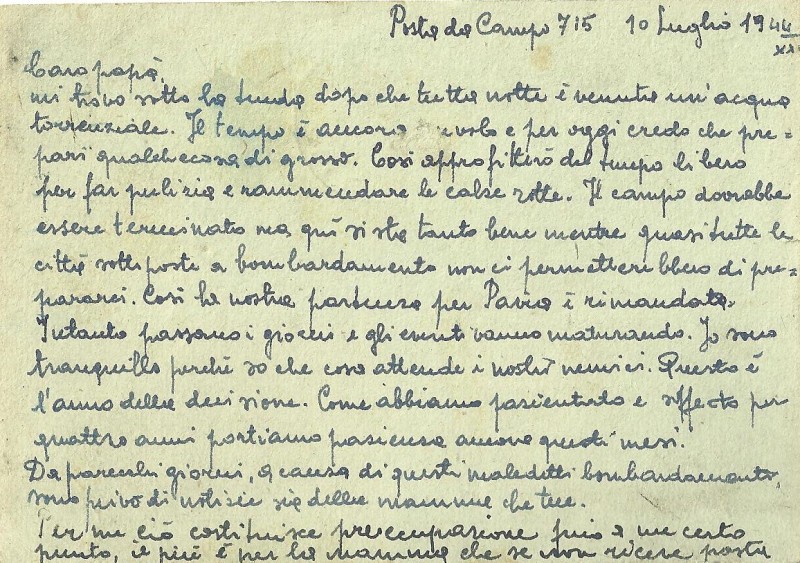 Posta da Campo 715 10 Luglio 1944
Caro papà,
mi trovo sotto la tenda dopo che tutta notte è venuta un'acqua
torrenziale. Il tempo è ancora nuvolo e per oggi credo che pre=
pari qualchecosa di grosso. Così approfitterò del tempo libero
per far pulizia e rammendare le calze rotte. Il campo dovrebbe
essere terminato ma quì si sta tanto bene mentre quasi tutte le
città sottoposte a bombardamento non ci permetterebbero di pre=
pararci. Così la nostra partenza per Pavia è rimandata.
Intanto passano i giorni e gli eventi vanno maturando. Io sono
tranquillo perchè so che cosa attende i nostri nemici. Questo è
l'anno della decisione. Come abbiamo pazientato e sofferto per
quattro anni portiamo pazienza ancora questi mesi.
Da parecchi giorni, a causa di questi maledetti bombardamenti,
sono privo di notizie sia della mamma che tue.
Per me ciò costituisce preoccupazione fino a un certo
punto, il più è per la mamma che se non riceve posta